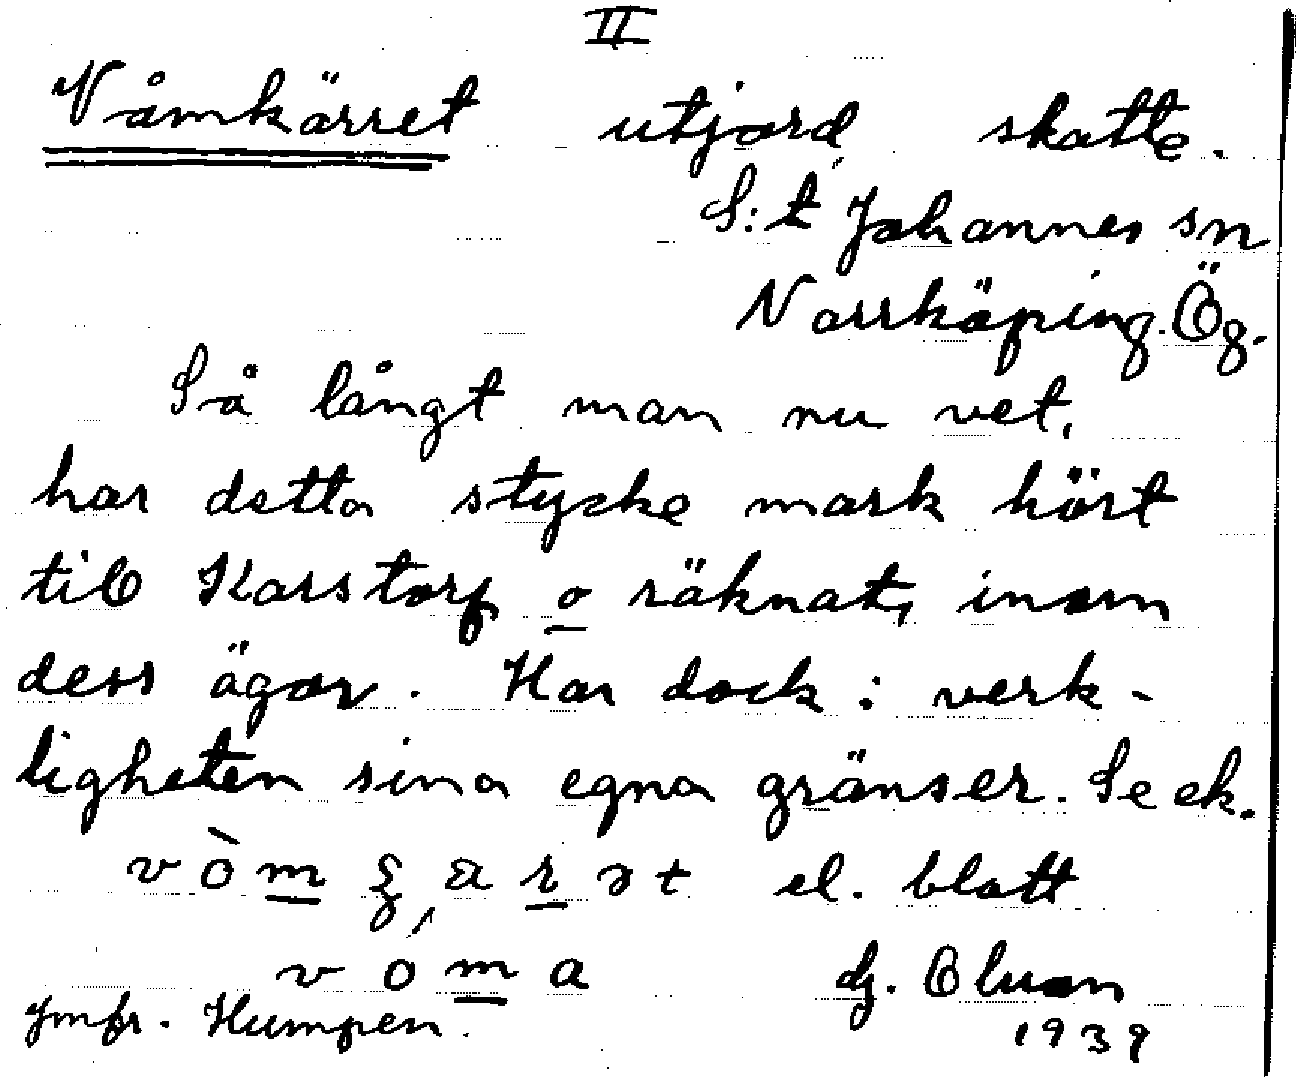 II
Våmkärret utjord skatte.
S:t Johannes sn
Norrköping. Ög.
Så långt man nu vet,
har detta stycke mark hört
till Karstorp o räknats inom
dess ägor. Har dock i verk-
ligheten sina egna gränser. Se ek.
vòm ʂärət el. blott
vóma
Jmfr. Humpen. 1939